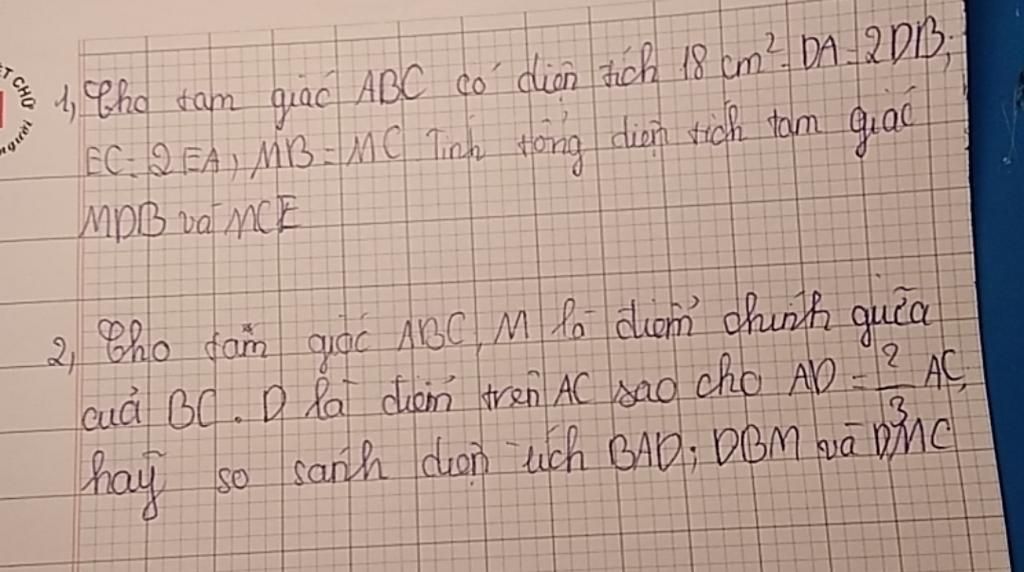 T CHỮ
người
1, Cho tam giác ABC có diện tích 18 cm². DA = 2DB;
EC = 2EA, MB = MC Tính tổng diện tích tam giác
MDB và MCE
2, Cho tam giác ABC, M là điểm chính giữa
của BC. D là điểm trên AC sao cho AD = 2/3 AC,
hãy so sánh diện tích BAD; DBM và DMC